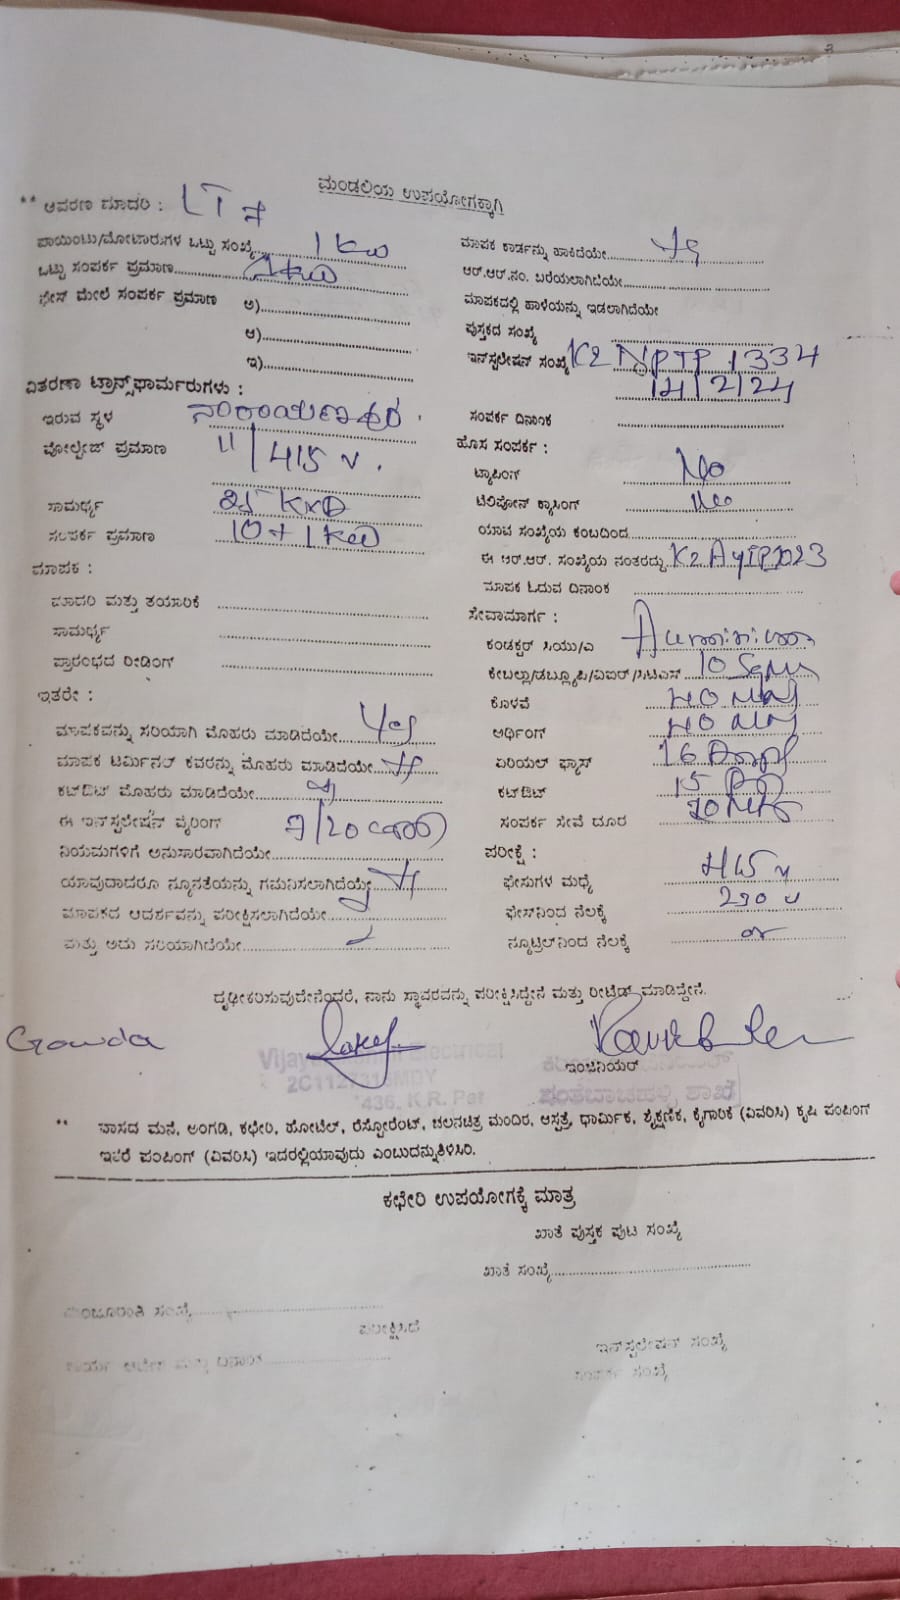 ಮಂಡಲಿಯ ಉಪಯೋಗಕ್ಕಾಗಿ
** ಆವರಣ ಮಾದರಿ : LT 7
ಪಾಯಿಂಟು/ಮೋಟಾರುಗಳ ಒಟ್ಟು ಸಂಖ್ಯೆ 1 kw
ಒಟ್ಟು ಸಂಪರ್ಕ ಪ್ರಮಾಣ 1 kw
ಫೇಸ್ ಮೇಲೆ ಸಂಪರ್ಕ ಪ್ರಮಾಣ ಅ)
ಆ)
ಇ)
ವಿತರಣಾ ಟ್ರಾನ್ಸ್‌ಫಾರ್ಮರುಗಳು :
ಇರುವ ಸ್ಥಳ
ವೋಲ್ಟೇಜ್ ಪ್ರಮಾಣ 11/415 v.
ಸಾಮರ್ಥ್ಯ 25 KVA
ಸಂಪರ್ಕ ಪ್ರಮಾಣ 10+1 kw
ಮಾಪಕ :
ಮಾದರಿ ಮತ್ತು ತಯಾರಿಕೆ
ಸಾಮರ್ಥ್ಯ
ಪ್ರಾರಂಭದ ರೀಡಿಂಗ್
ಇತರೇ :
ಮಾಪಕವನ್ನು ಸರಿಯಾಗಿ ಮೊಹರು ಮಾಡಿದೆಯೇ Yes
ಮಾಪಕ ಟರ್ಮಿನಲ್ ಕವರನ್ನು ಮೊಹರು ಮಾಡಿದೆಯೇ
ಕಟ್‌ಔಟ್ ಮೊಹರು ಮಾಡಿದೆಯೇ
ಈ ಇನ್‌ಸ್ಟಲೇಷನ್ ವೈರಿಂಗ್
ನಿಯಮಗಳಿಗೆ ಅನುಸಾರವಾಗಿದೆಯೇ
ಯಾವುದಾದರೂ ನ್ಯೂನತೆಯನ್ನು ಗಮನಿಸಲಾಗಿದೆಯೇ
ಮಾಪಕದ ಆದರ್ಶವನ್ನು ಪರೀಕ್ಷಿಸಲಾಗಿದೆಯೇ
ಮತ್ತು ಅದು ಸರಿಯಾಗಿದೆಯೇ
ಮಾಪಕ ಕಾರ್ಡನ್ನು ಹಾಕಿದೆಯೇ
ಆರ್.ಆರ್.ನಂ. ಬರೆಯಲಾಗಿದೆಯೇ
ಮಾಪಕದಲ್ಲಿ ಹಾಳೆಯನ್ನು ಇಡಲಾಗಿದೆಯೇ
ಪುಸ್ತಕದ ಸಂಖ್ಯೆ
ಇನ್‌ಸ್ಟಲೇಷನ್ ಸಂಖ್ಯೆ K2 NPTP 1334
14/2/24
ಸಂಪರ್ಕ ದಿನಾಂಕ
ಹೊಸ ಸಂಪರ್ಕ :
ಟ್ಯಾಪಿಂಗ್ No
ಟೆಲಿಫೋನ್ ಕ್ರಾಸಿಂಗ್ No
ಯಾವ ಸಂಖ್ಯೆಯ ಕಂಬದಿಂದ
ಈ ಆರ್.ಆರ್. ಸಂಖ್ಯೆಯ ನಂತರದ್ದು
ಮಾಪಕ ಓದುವ ದಿನಾಂಕ
ಸೇವಾಮಾರ್ಗ :
ಕಂಡಕ್ಟರ್ ಸಿಯು/ಎ
ಕೇಬಲ್ಲು/ಡಬ್ಲ್ಯೂಪಿ/ವಿಐಆರ್/ಸಿಟಿಎಸ್ 10
ಕೊಳವೆ
ಅರ್ಥಿಂಗ್
ಏರಿಯಲ್ ಫ್ಯೂಸ್ 16
ಕಟ್‌ಔಟ್ 15
ಸಂಪರ್ಕ ಸೇವೆ ದೂರ
ಪರೀಕ್ಷೆ :
ಫೇಸುಗಳ ಮಧ್ಯೆ 415 v
ಫೇಸ್‌ನಿಂದ ನೆಲಕ್ಕೆ 230 v
ನ್ಯೂಟ್ರಲ್‌ನಿಂದ ನೆಲಕ್ಕೆ
ದೃಢೀಕರಿಸುವುದೇನೆಂದರೆ, ನಾನು ಸ್ಥಾವರವನ್ನು ಪರೀಕ್ಷಿಸಿದ್ದೇನೆ ಮತ್ತು ರೀಟೆಡ್ ಮಾಡಿದ್ದೇನೆ.
Gowda
Electrical
ಇಂಜಿನಿಯರ್
436, K.R. Pet
ಶಾಖೆ
** ವಾಸದ ಮನೆ, ಅಂಗಡಿ, ಕಛೇರಿ, ಹೋಟೆಲ್, ರೆಸ್ಟೋರೆಂಟ್, ಚಲನಚಿತ್ರ ಮಂದಿರ, ಆಸ್ಪತ್ರೆ, ಧಾರ್ಮಿಕ, ಶೈಕ್ಷಣಿಕ, ಕೈಗಾರಿಕೆ (ವಿವರಿಸಿ) ಕೃಷಿ ಪಂಪಿಂಗ್
ಇತರೆ ಪಂಪಿಂಗ್ (ವಿವರಿಸಿ) ಇದರಲ್ಲಿಯಾವುದು ಎಂಬುದನ್ನುತಿಳಿಸಿರಿ.
ಕಛೇರಿ ಉಪಯೋಗಕ್ಕೆ ಮಾತ್ರ
ಖಾತೆ ಪುಸ್ತಕ ಪುಟ ಸಂಖ್ಯೆ
ಖಾತೆ ಸಂಖ್ಯೆ
ಮಂಜೂರಾತಿ ಸಂಖ್ಯೆ
ಪರೀಕ್ಷಿಸಿದೆ
ಇನ್‌ಸ್ಟಲೇಷನ್ ಸಂಖ್ಯೆ
ಸಂಪರ್ಕ ಸಂಖ್ಯೆ